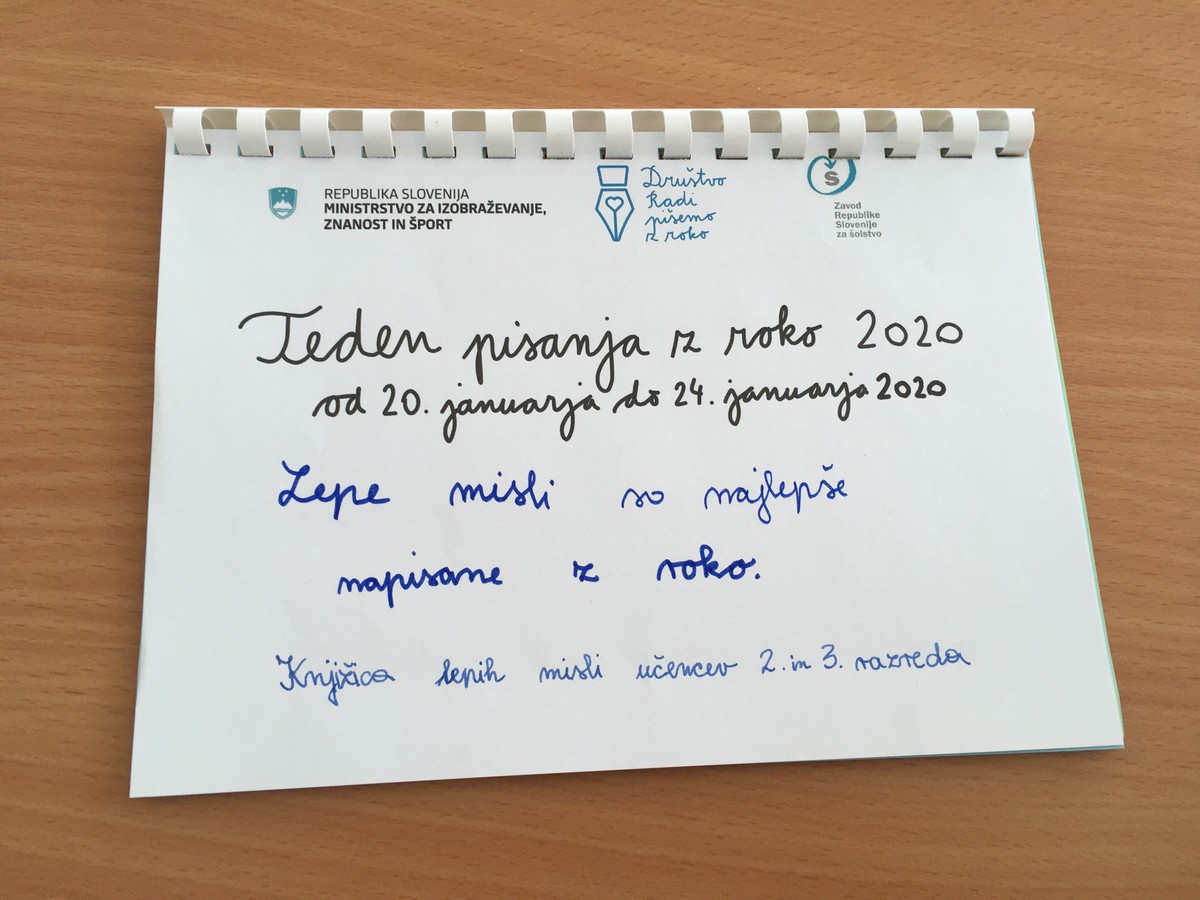 REPUBLIKA SLOVENIJA
MINISTRSTVO ZA IZOBRAŽEVANJE,
ZNANOST IN ŠPORT
Društvo
Radi
pišemo
z roko
Š
Zavod
Republike
Slovenije
za šolstvo
Teden pisanja z roko 2020
od 20. januarja do 24. januarja 2020
Lepe misli so najlepše
napisane z roko.
Knjižica lepih misli učencev 2. in 3. razreda